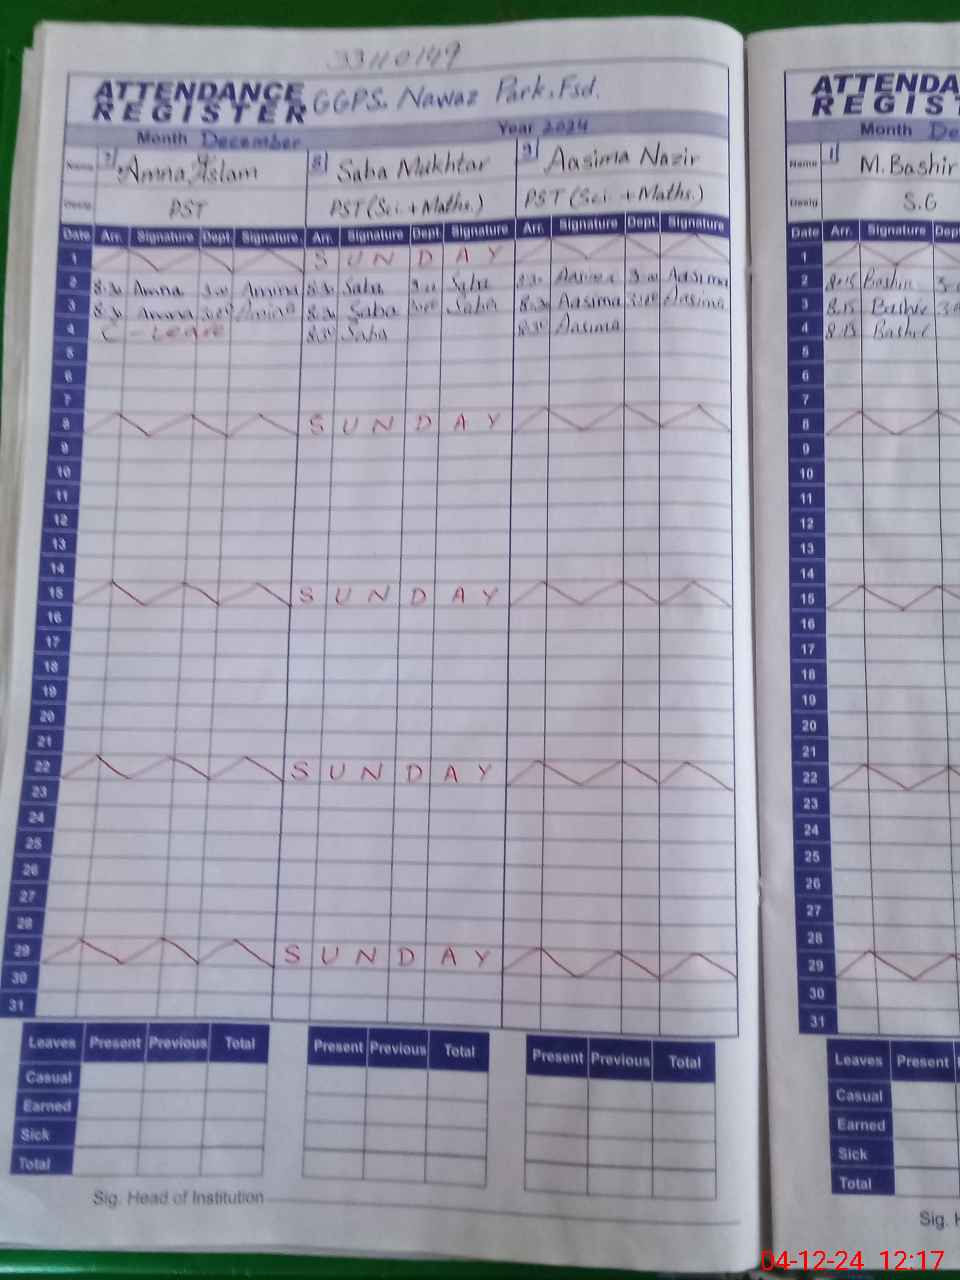 33110149
ATTENDANCE
REGISTER GGPS. Nawaz Park. Fsd.
Month December Year 2024
Name 7) Amna Aslam 8) Saba Mukhtar 9) Aasima Nazir
Desig PST PST (Sci. + Maths.) PST (Sci. + Maths.)
Date Arr. Signature Dept. Signature Arr. Signature Dept. Signature Arr. Signature Dept. Signature
1 S U N D A Y
2 8:30 Amna 3:00 Amina 8:30 Saba 3:00 Saba 8:30 Aasima 3:00 Aasima
3 8:30 Amna 3:00 Amina 8:30 Saba 3:00 Saba 8:30 Aasima 3:00 Aasima
4 C - Leave 8:30 Saba 8:30 Aasima
5
6
7
8 S U N D A Y
9
10
11
12
13
14
15 S U N D A Y
16
17
18
19
20
21
22 S U N D A Y
23
24
25
26
27
28
29 S U N D A Y
30
31
Leaves Present Previous Total Present Previous Total Present Previous Total
Casual
Earned
Sick
Total
Sig. Head of Institution
ATTENDA
REGIST
Month De
Name 11 M. Bashir
Desig S.G
Date Arr. Signature Dept
1
2 8:15 Bashir
3 8:15 Bashir
4 8:15 Bashir
5
6
7
8
9
10
11
12
13
14
15
16
17
18
19
20
21
22
23
24
25
26
27
28
29
30
31
Leaves Present
Casual
Earned
Sick
Total
Sig. H
04-12-24 12:17